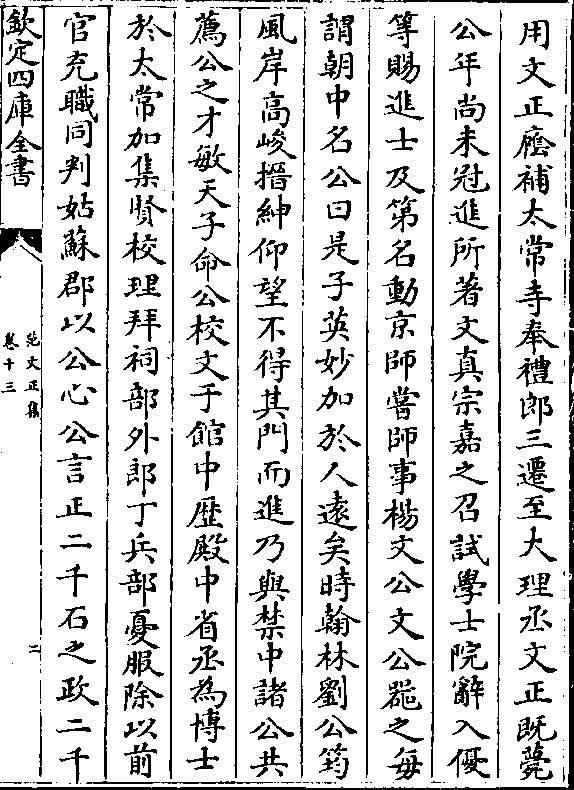 用文正廕補太常寺奉禮郎三遷至大理丞文正既薨
公年尚未冠進所著文真宗嘉之召試學士院辭入優
等賜進士及第名動京師嘗師事楊文公文公器之每
謂朝中名公曰是子英妙加於人遠矣時翰林劉公筠
風岸高峻搢紳仰望不得其門而進乃與禁中諸公共
薦公之才敏天子命公校文于館中歴殿中省丞為博士
於太常加集賢校理拜祠部外郎丁兵部憂服除以前
官充職同判姑蘇郡以公心公言正二千石之政二千
欽定四庫全書
范文正集
卷十三
二